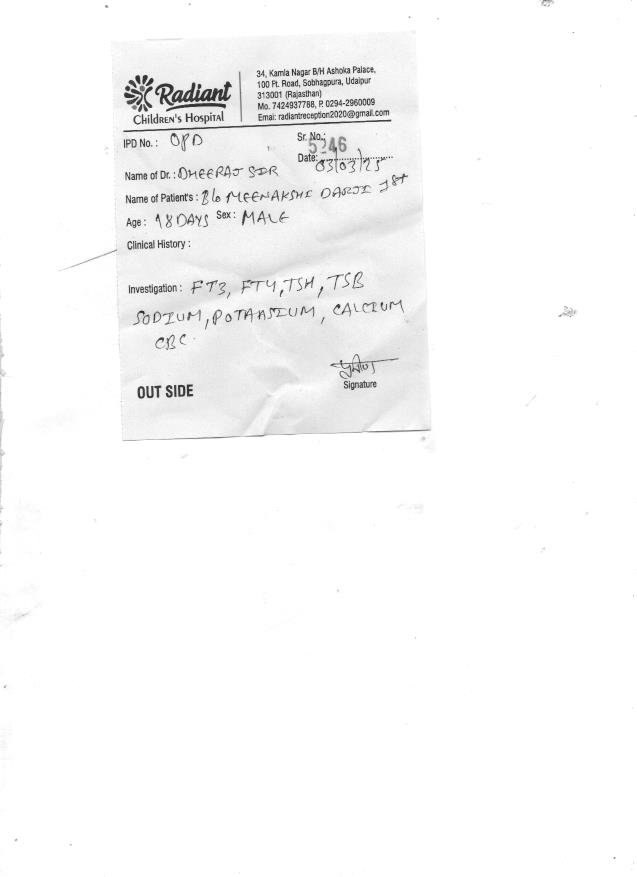 Radiant
Children's Hospital
34, Kamla Nagar B/H Ashoka Palace,
100 Ft. Road, Sobhagpura, Udaipur
313001 (Rajasthan)
Mo. 7424937788, P. 0294-2960009
Email: radiantreception2020@gmail.com
IPD No. : OPD
Sr. No.: 5246
Date: 03/03/25
Name of Dr. : DHEERAJ SIR
Name of Patient's : B/o MEENAKSHI DARJI Ist
Age : 18 DAYS Sex : MALE
Clinical History :
Investigation : FT3, FT4, TSH, TSB
SODIUM, POTAASIUM, CALCIUM
CBC
OUT SIDE
Signature